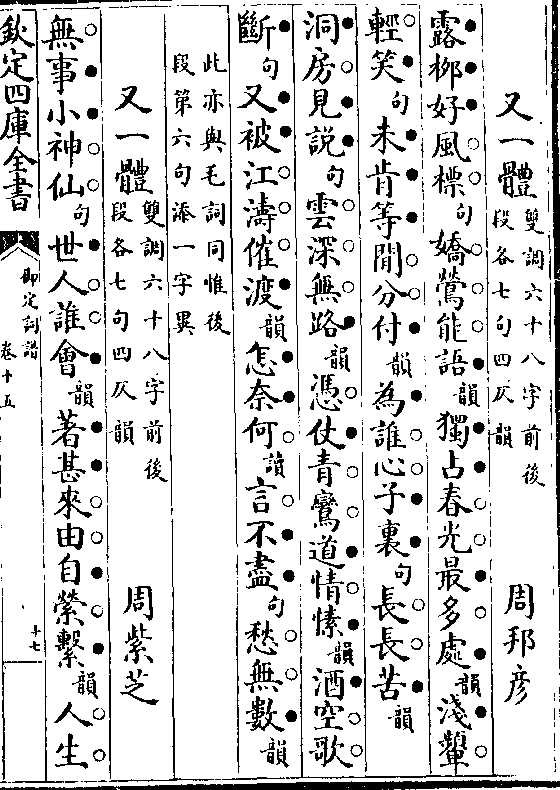 又一體雙調六十八字前後
段各七句四仄韻周邦彦
露桞好風標句嬌鶯能語韻獨占春光最多處韻淺顰
輕笑句未肯等閒分付韻為誰心子裏句長長苦韻
洞房見說句雲深無路韻憑仗青鸞道情愫韻酒空歌
斷句又被江濤催渡韻怎奈何讀言不盡句愁無數韻
此亦與毛詞同惟後
段第六句添一字異
又一體雙調六十八字前後
段各七句四仄韻周紫芝
無事小神仙句世人誰會韻著甚來由自縈繫韻人生
欽定四庫全書
御定詞譜
卷十五
十七